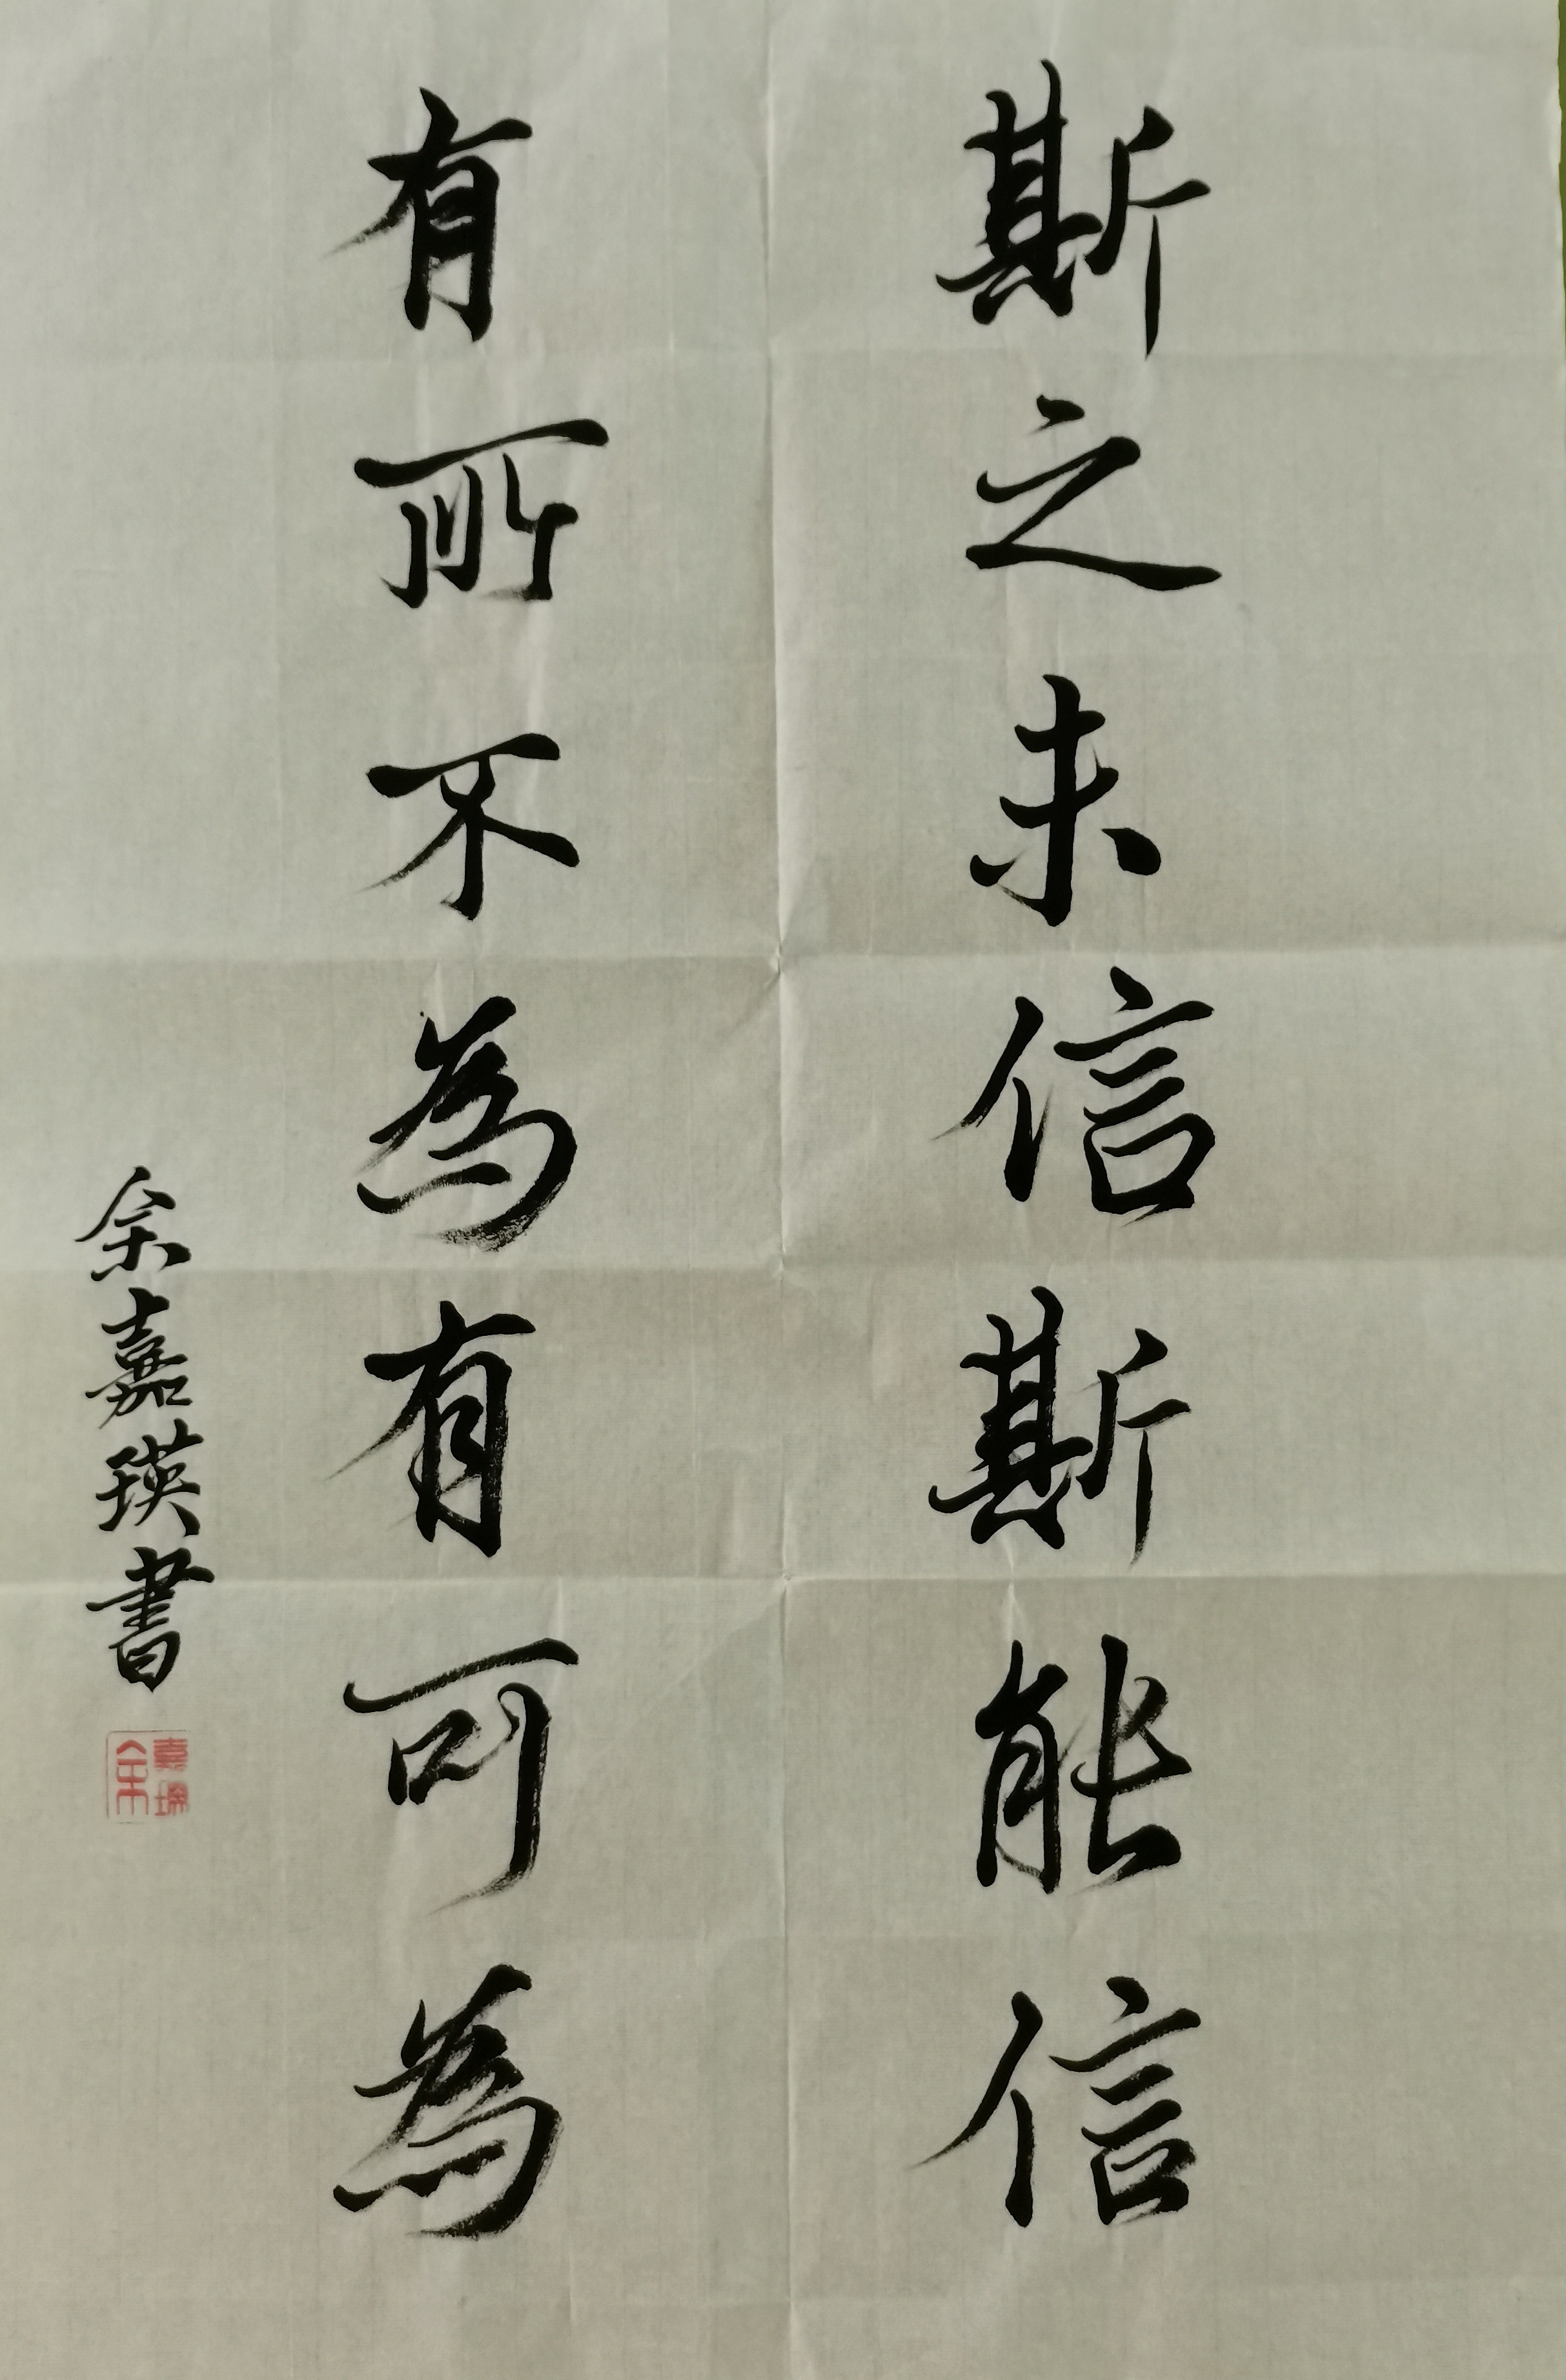 斯之未信斯能信
有所不為有可為
余嘉瑛書